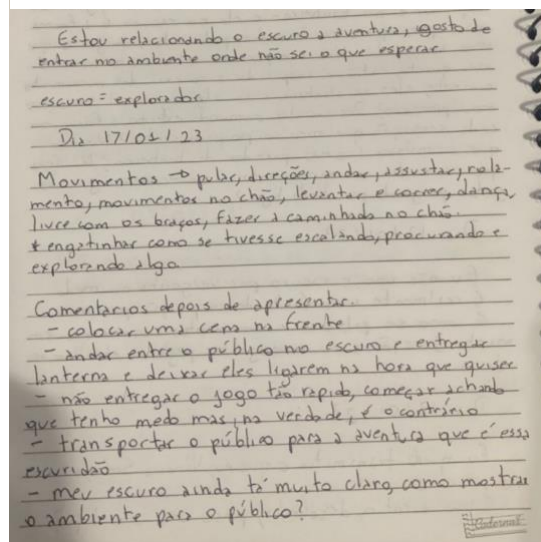 Estou relacionando o escuro a aventura, gosto de
entrar no ambiente onde não sei o que esperar
escuro = explorador.
Dia 17/01/23
Movimentos → pular, direções, andar, assustar, rola-
mento, movimentos no chão, levantar e correr, dança,
livre com os braços, fazer a caminhada no chão.
* engatinhar como se tivesse escalando, procurando e
explorando algo
Comentarios depois de apresentar.
- colocar uma cena na frente
- andar entre o público no escuro e entregar
lanterna e deixar eles ligarem na hora que quiser
- não entregar o jogo tão rapido, começar achando
que tenho medo mas, na verdade, é o contrário
- transportar o público para a aventura que é essa
escuridão
- meu escuro ainda tá muito claro, como mostrar
o ambiente para o público?